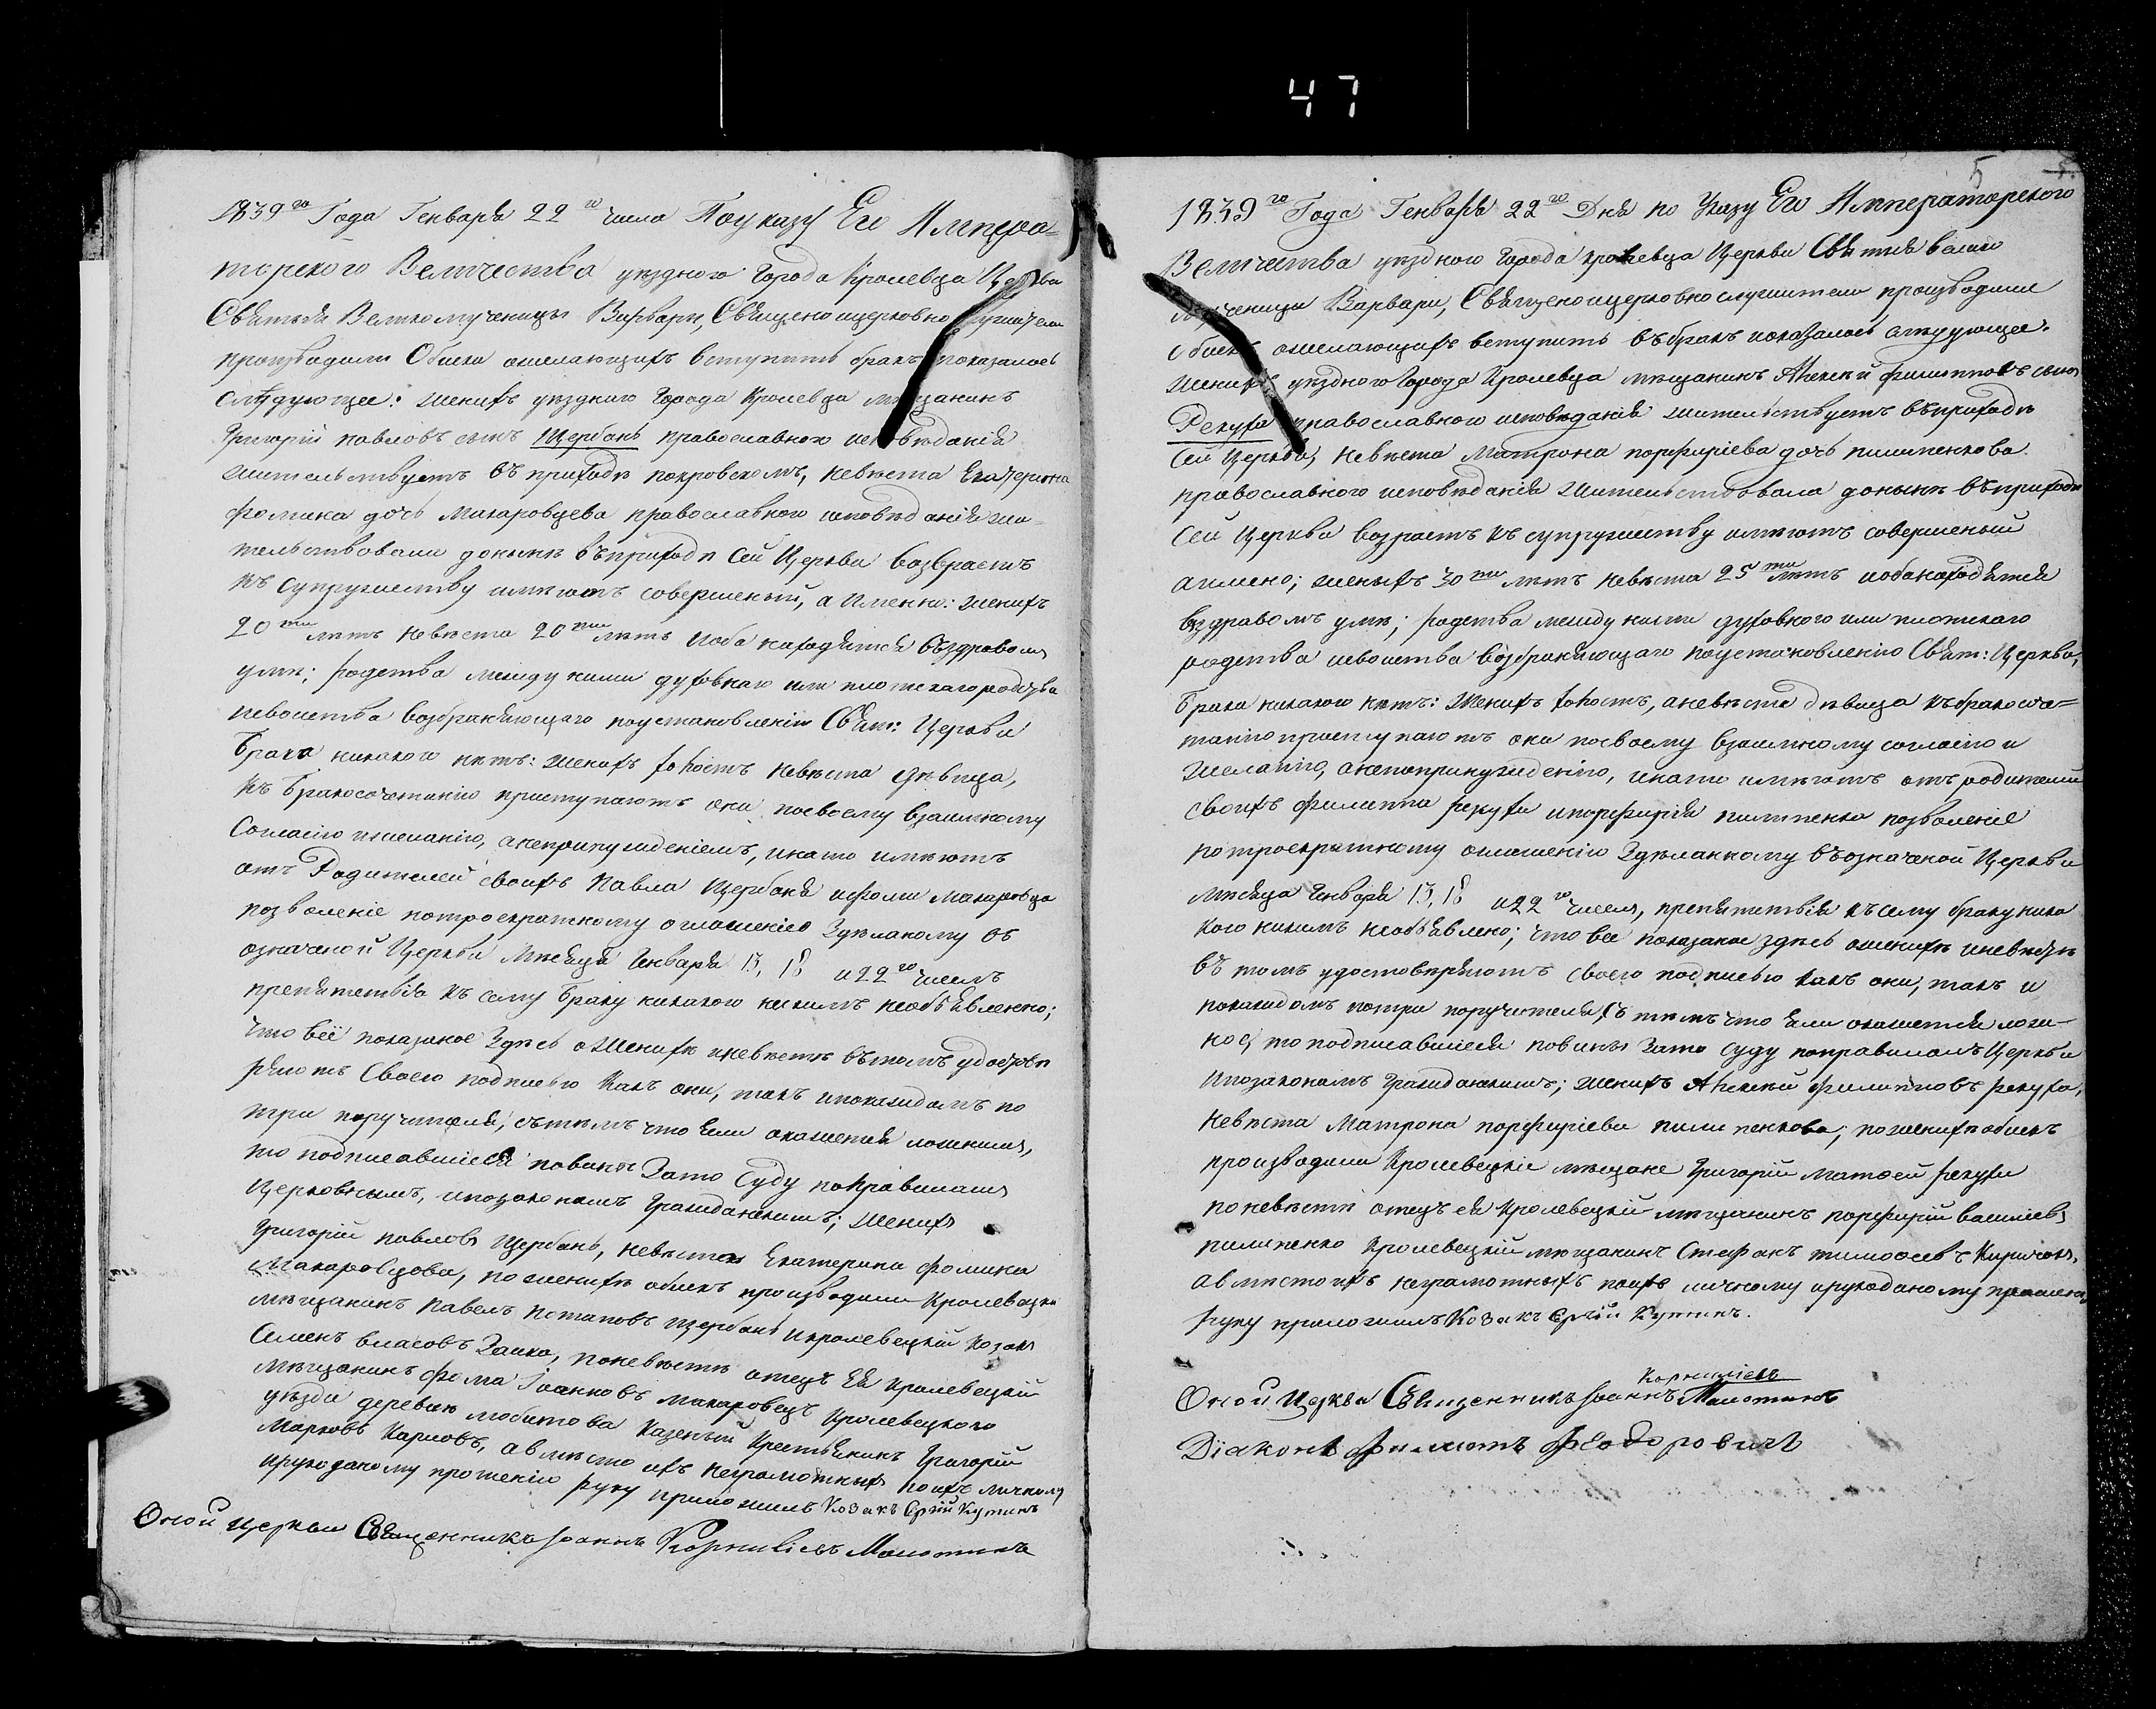 47
1839го Года Генваря 22го числа По указу Его Импера=
торского Величества уездного Города Кролевца Церкви
Святыя Великомученицы Варвары, Священоицерковно служители
производили Обиск ожелающих вступить брак показалось
следующее: жених уездного Города Кролевца мещанинъ
Григорій павловъ сынъ Щербань православного исповеданія
жительствуетъ въ приходе покровскомъ, невеста Екатерина
фомина дочь макаровцева православного исповеданія жи=
тельствовали доныне въприходе Сей Церкви возврастъ
къ супружеству имеютъ совершеный, а Именно: женихъ
20ти летъ невеста 20ти летъ иоба находятся въздравомъ
уме; родства между ними духовнаго или плотскагородства
исвоиства возбраняющаго поустановленію Свят: Церкви
брака никакого нетъ: женихъ холостъ невеста девица,
къ бракосочетанію приступаютъ они посвоему взаимному
Согласію ижеланію, анепринужденіемъ, инато имеютъ
отъ Родителей своихъ Павла Щербаня ифомы макаровца
позволеніе потроекратному оглашенію Зделаному въ
означеной Церкви Месяця Января 15, 18 и22го числъ
препятствія къ сему браку никакого никимъ необъявленно;
что всё показаное Здесь оЖенихе иневесте въмомъ удостове
ряютъ Своею подписью Какъ они, такъ ипокаждомъ по
три поручителя, стемъ что Ежели окажется ложнымъ,
то подписавшіеся повины Зато Суду поправиламъ
Церковнымъ, ипозаконамъ Гражданскимъ; Женихъ
Григорій павловъ Щербань, невеста Екатерина фомина
Макаровцова, по женихе обискъ производили Кролевецкій
мещанинъ Павелъ Потаповъ щербань икролевецкій Козакъ
Семенъ власовъ Заика, поневесте отецъ Ея Кролевецкій
мещанинъ фома Іоанновъ макаровецъ Кролевецкого
уезда деревни любитова Казеный Крестьянинъ Григорій
Марковъ Карповъ, авместо ихъ неграмотныхъ поихъ личному
ирукоданому прошенію руку приложилъ Козакъ Сргій Кутинъ
Оной церкви Священникъ Іоаннъ Корниліевъ Малютинъ
5
1839го Года Генваря 22го Дня по Указу Его Императорского
Величества уездного Города кролевца Церкви Святыя велико
мученицы Варвари, Священоицерковнослужители производили
обискъ ожелающихъ вступить въбракъ показалось следующее.
Женихъ уездного Города Кролевца мещанинъ Алексей филипповъ сынъ
Рекуха православного исповеданія жительствуетъ въприходе
Сей Церкви, невеста Матрона порфиріева дочь пилипенкова
православного исповеданія жительствовала доныне въприходе
Сей Церкви возрастъ къ супружеству имеютъ совершеный
аимено; женихъ 30ти летъ невеста 25ти летъ иобанаходятся
въздравомъ уме; родства между ними духовного или плотскаго
родства исвоиства возбраняющаго поустановленію Свят: Церкви,
брака никакого нетъ: Женихъ холостъ, аневеста девица къбракосоче=
танію приступаютъ они посвоему взаимному согласію и
желанію, анепопринужденію, инато имеютъ отъ родителей
своихъ Филиппа рекухи ипорфирія пилипенка позволеніе
потроекратному оглашенію Зделанному въозначеной Церкви
месяца Января 15, 18 и22го числъ, препятствія къ сему браку ника
кого никимъ необъявлено; что все показаное здесь ожених иневесте
въ томъ удостоверяютъ своею подписью какъ они, такъ и
покаждомъ потри поручителя, Съ темъ что Ежели окажется ложно
ное, то подписавшіеся повины Зато Суду поправиламъ Церкви
ипозаконамъ Гражданскимъ; женихъ Алексей филиповъ рекуха,
Невеста Матрона порфиріева пилипенкова; поженихе обискъ
производили Кролевецкіе мещане Григорій матвей рекухи
поневесте отецъ ея Кролевецкій мещанинъ порфирій васильевъ
пилипенко Кролевецкій мещанинъ Стефанъ тимофеевъ Киричокъ,
авместоихъ неграмотныхъ поихъ личному ирукоданому прошенію
руку приложилъ Козакъ Сргій Кутинъ.
Оной церкви Священникъ Іоаннъ Корниліевъ Малютинъ
Діаконъ Филиппъ Федоровичъ